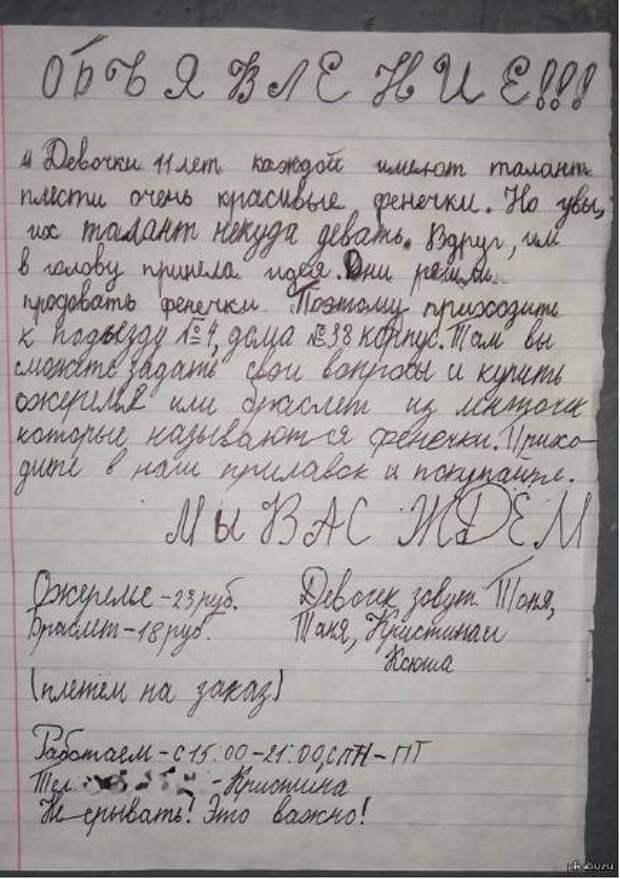 ОБЪЯВЛЕНИЕ!!!
4 Девочки 11 лет каждой имеют талант
плести очень красивые фенечки. Но увы,
их талант некуда девать. Вдруг, им
в голову пришла идея. Они решили
продовать фенечки. Поэтому приходите
к подъезду №4, дома №38 корпус. Там вы
сможете задать свои вопросы и купить
ожерелье или браслет из ленточек
которые называются фенечки. Прихо-
дите в наш прилавок и покупайте.
МЫ ВАС ЖДЁМ
Ожерелье - 23 руб.
Браслет - 18 руб.
(плетём на заказ)
Девочек зовут. Таня,
Таня, Кристина и
Ксюша
Работаем - с 15:00 - 21:00, с ПН - ПТ
Тел. - Кристина
Не срывать! Это важно!
pikabu.ru